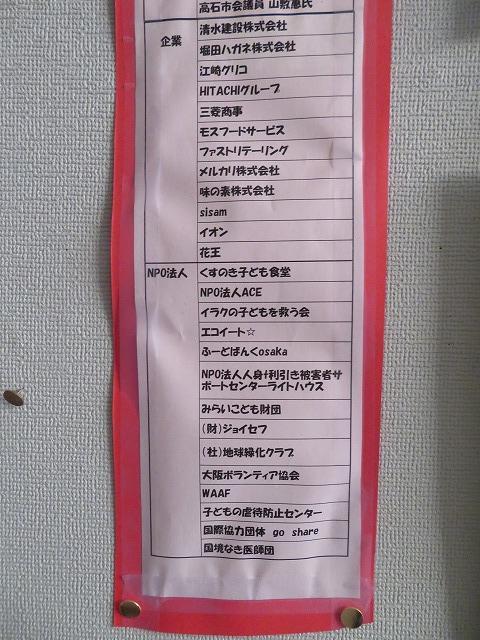 高石市会議員 山敷恵氏
企業
清水建設株式会社
堀田ハガネ株式会社
江崎グリコ
HITACHIグループ
三菱商事
モスフードサービス
ファストリテーリング
メルカリ株式会社
味の素株式会社
sisam
イオン
花王
NPO法人
くすのき子ども食堂
NPO法人ACE
イラクの子どもを救う会
エコイート☆
ふーどばんくosaka
NPO法人人身t利引き被害者サ
ポートセンターライトハウス
みらいこども財団
(財)ジョイセフ
(社)地球緑化クラブ
大阪ボランティア協会
WAAF
子どもの虐待防止センター
国際協力団体 go share
国境なき医師団